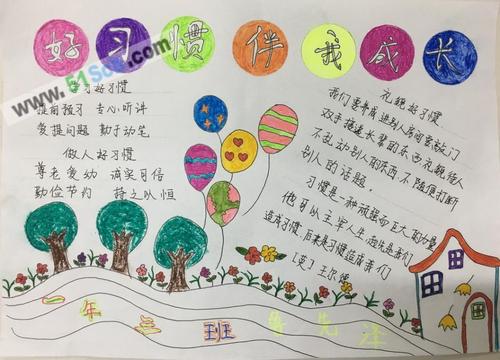 好习惯伴我成长
www.51Sol.com
学习好习惯
提前预习 专心听讲
爱提问题 勤于动笔
做人好习惯
尊老爱幼 诚实守信
勤俭节约 持之以恒
礼貌好习惯
我们要养成进别人房间要敲门
双手接递长辈的东西礼貌待人
不乱动别人的东西,不随便打断
别人的话题。
习惯是一种顽强而巨大的力量
他可以主宰人生。
造成习惯,后来是习惯造成我们
[英]王尔德
一年三班 鲁先泽